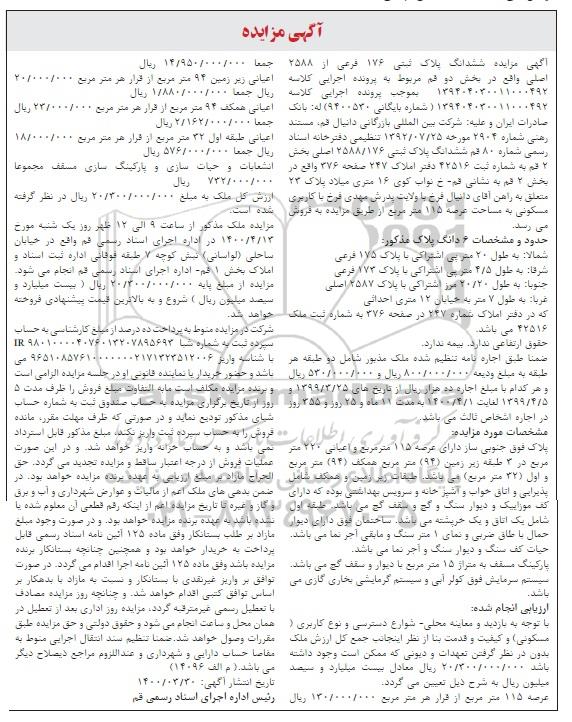 آگهی مزایده
آگهی مزایده ششدانگ پلاک ثبتی ۱۷۶ فرعی از ۲۵۸۸
اصلی واقع در بخش دو قم مربوط به پرونده اجرایی کلاسه
۱۳۹۴۰۴۰۳۰۰۱۱۰۰۰۴۹۲ بموجب پرونده اجرایی کلاسه
۱۳۹۴۰۴۰۳۰۰۱۱۰۰۰۴۹۲ ( شماره بایگانی ۹۴۰۰۵۳۰) له: بانک
صادرات ایران و علیه: شرکت بین المللی بازرگانی دانیال قم، مستند
رهنی شماره ۲۹۰۴ مورخه ۱۳۹۲/۰۷/۲۵ تنظیمی دفترخانه اسناد
رسمی شماره ۸۰ قم ششدانگ پلاک ثبتی ۲۵۸۸/۱۷۶ اصلی بخش
۲ قم به شماره ثبت ۴۲۵۱۶ دفتر املاک ۲۴۷ صفحه ۳۷۶ واقع در
بخش ۲ قم به نشانی قم- خ نواب کوی ۱۶ متری میلاد پلاک ۲۳
متعلق به راهن آقای دانیال فرخ با ولایت پدرش مهدی فرخ با کاربری
مسکونی به مساحت عرصه ۱۱۵ متر مربع از طریق مزایده به فروش
می رسد.
حدود و مشخصات ۶ دانگ پلاک مذکور:
شمالا: به طول ۲۰ متر پی اشتراکی با پلاک ۱۷۵ فرعی
شرقا: به طول ۴/۵ متر پی اشتراکی با پلاک ۱۷۳ فرعی
جنوبا: به طول ۲۰/۲۰ مرز اشتراکی با پلاک ۲۵۸۷ اصلی
غربا: به طول ۷ متر به خیابان ۱۲ متری احداثی
که در دفتر املاک شماره ۲۴۷ در صفحه ۳۷۶ به شماره ثبت ملک
۴۲۵۱۶ می باشد.
حقوق ارتفاعی ندارد. بیمه ندارد.
ضمنا طبق اجاره نامه تنظیم شده ملک مذبور شامل دو طبقه هر
طبقه به مبلغ ودیعه ۸۰۰/۰۰۰/۰۰۰ ریال و ۵۳۰/۰۰۰/۰۰۰ ریال
و هر کدام با مبلغ اجاره ده هزار ریال از تاریخ های ۱۳۹۹/۳/۲۵ و
۱۳۹۹/۴/۵ لغایت ۱۴۰۰/۴/۱ به مدت ۱۱ ماه و ۲۵ روز و ۳۵۵ روز
در اجاره اشخاص ثالث می باشد.
مشخصات مورد مزایده:
پلاک فوق جنوبی ساز دارای عرصه ۱۱۵ مترمربع و اعیانی ۲۲۰ متر
مربع در ۳ طبقه زیر زمین (۹۴) متر مربع همکف (۹۴) متر مربع
و اول (۳۲ متر مربع) می باشد. طبقات زیر زمین و همکف شامل
پذیرایی و اتاق خواب و آشپز خانه و سرویس بهداشتی بوده که دارای
کف موزاییک و دیوار سنگ و گچ و سقف گچ می باشد. طبقه اول
شامل یک اتاق و یک خرپشته می باشد. ساختمان فوق دارای دیوار
حمال با طاق ضربی و نمای ۱ متر سنگ و مابقی آجر نما می باشد.
حیات کف سنگ و دیوار سنگ و آجر نما می باشد.
پارکینگ مسقف به متراژ ۱۵ متر مربع با دیوار و سقف گچ می باشد.
سیستم سرمایش فوق کولر آبی و سیستم گرمایشی بخاری گازی می
باشد.
ارزیابی انجام شده:
با توجه به بازدید و معاینه محلی- شوارع دسترسی و نوع کاربری (
مسکونی) و کیفیت و قدمت بنا از نظر اینجانب جمع کل ارزش ملک
بدون در نظر گرفتن تعهدات و دیونی که ممکن است وجود داشته
باشد ۲۰/۳۰۰/۰۰۰/۰۰۰ ریال معادل بیست میلیارد و سیصد
میلیون ریال به شرح ذیل تعیین می گردد.
عرصه ۱۱۵ متر مربع از قرار هر متر مربع ۱۳۰/۰۰۰/۰۰۰ ریال
جمعا ۱۴/۹۵۰/۰۰۰/۰۰۰ ریال
اعیانی زیر زمین ۹۴ متر مربع از قرار هر متر مربع ۲۰/۰۰۰/۰۰۰
ریال جمعا ۱/۸۸۰/۰۰۰/۰۰۰ ریال
اعیانی همکف ۹۴ متر مربع از قرار هر متر مربع ۲۳/۰۰۰/۰۰۰ ریال
جمعا ۲/۱۶۲/۰۰۰/۰۰۰ ریال
اعیانی طبقه اول ۳۲ متر مربع از قرار هر متر مربع ۱۸/۰۰۰/۰۰۰
ریال جمعا ۵۷۶/۰۰۰/۰۰۰ ریال
انشعابات و حیات سازی و پارکینگ سازی مسقف مجموعا
۷۳۲/۰۰۰/۰۰۰ ریال
ارزش کل ملک به مبلغ ۲۰/۳۰۰/۰۰۰/۰۰۰ ریال در نظر گرفته
شده است.
مزایده ملک مذکور از ساعت ۹ الی ۱۲ ظهر روز یک شنبه مورخ
۱۴۰۰/۴/۱۳ در اداره اجرای اسناد رسمی قم واقع در خیابان
ساحلی (لواسانی) نبش کوچه ۷ طبقه فوقانی اداره ثبت اسناد و
املاک بخش ۱ قم- اداره اجرای اسناد رسمی قم انجام می شود.
مزایده از مبلغ پایه ۲۰/۳۰۰/۰۰۰/۰۰۰ ریال ( بیست میلیارد و
سیصد میلیون ریال ) شروع و به بالاترین قیمت پیشنهادی فروخته
خواهد شد.
شرکت در مزایده منوط به پرداخت ده درصد از مبلغ کارشناسی به حساب
سپرده ثبت به شماره شبا IR ۹۸۰۱۰۰۰۰۴۰۷۶۰۱۳۲۰۷۸۹۵۶۹۳
با شناسه واریز ۹۶۵۱۰۸۵۷۶۱۰۰۰۰۰۰۰۲۱۷۱۳۲۳۵۱۲۰۰۶ می
باشد و حضور خریدار یا نماینده قانونی او در جلسه مزایده الزامی است
و برنده مزایده مکلف است مابه التفاوت مبلغ فروش را ظرف مدت ۵
روز از تاریخ برگزاری مزایده به حساب صندوق ثبت به شماره حساب
شبای مذکور تودیع نماید و در صورتی که ظرف مهلت مقرر، مانده
فروش را به حساب سپرده ثبت واریز نکند، مبلغ مذکور قابل استرداد
نمی باشد و به حساب خزانه واریز خواهد شد. و در این صورت
عملیات فروش از درجه اعتبار ساقط و مزایده تجدید می گردد. حق
الحراج مازاد بر مبلغ ارزیابی به عهده برنده مزایده خواهد بود. در
ضمن بدهی های ملک اعم از مالیات و عوارض شهرداری و آب و برق
و گاز و غیره تا تاریخ مزایده اعم از اینکه رقم قطعی آن معلوم شده یا
نشده باشد به عهده برنده مزایده خواهد بود. و در صورت وجود مبلغ
مازاد بر طلب بستانکار وفق ماده ۱۲۵ آئین نامه اسناد رسمی قابل
پرداخت به خریدار خواهد بود و همچنین چنانچه بستانکار برنده
مزایده باشد وفق ماده ۱۲۵ آئین نامه اجرا اقدام می گردد. در صورت
توافق بر واریز غیرنقدی با بستانکار و نسبت به مازاد با بدهکار بر
اساس توافق کتبی اقدام خواهد شد. و چنانچه روز مزایده مصادف
با تعطیل رسمی غیرمترقبه گردد، مزایده روز اداری بعد از تعطیل در
همان محل و ساعت انجام می شود و حقوق دولتی و حق مزایده طبق
مقررات وصول خواهد شد.ضمنا تنظیم سند انتقال اجرایی منوط به
مفاصا حساب دارایی و شهرداری و عنداللزوم مراجع ذیصلاح دیگر
می باشد.( م الف ۱۴۰۹۶)
تاریخ انتشار آگهی: ۱۴۰۰/۰۳/۳۰
رئیس اداره اجرای اسناد رسمی قم